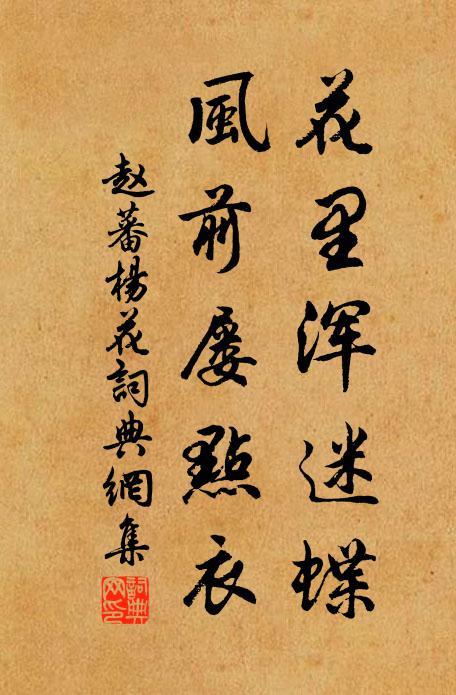 花里浑迷蝶
風前屡點衣
赵蕃楊花詞典網集
詞典網印